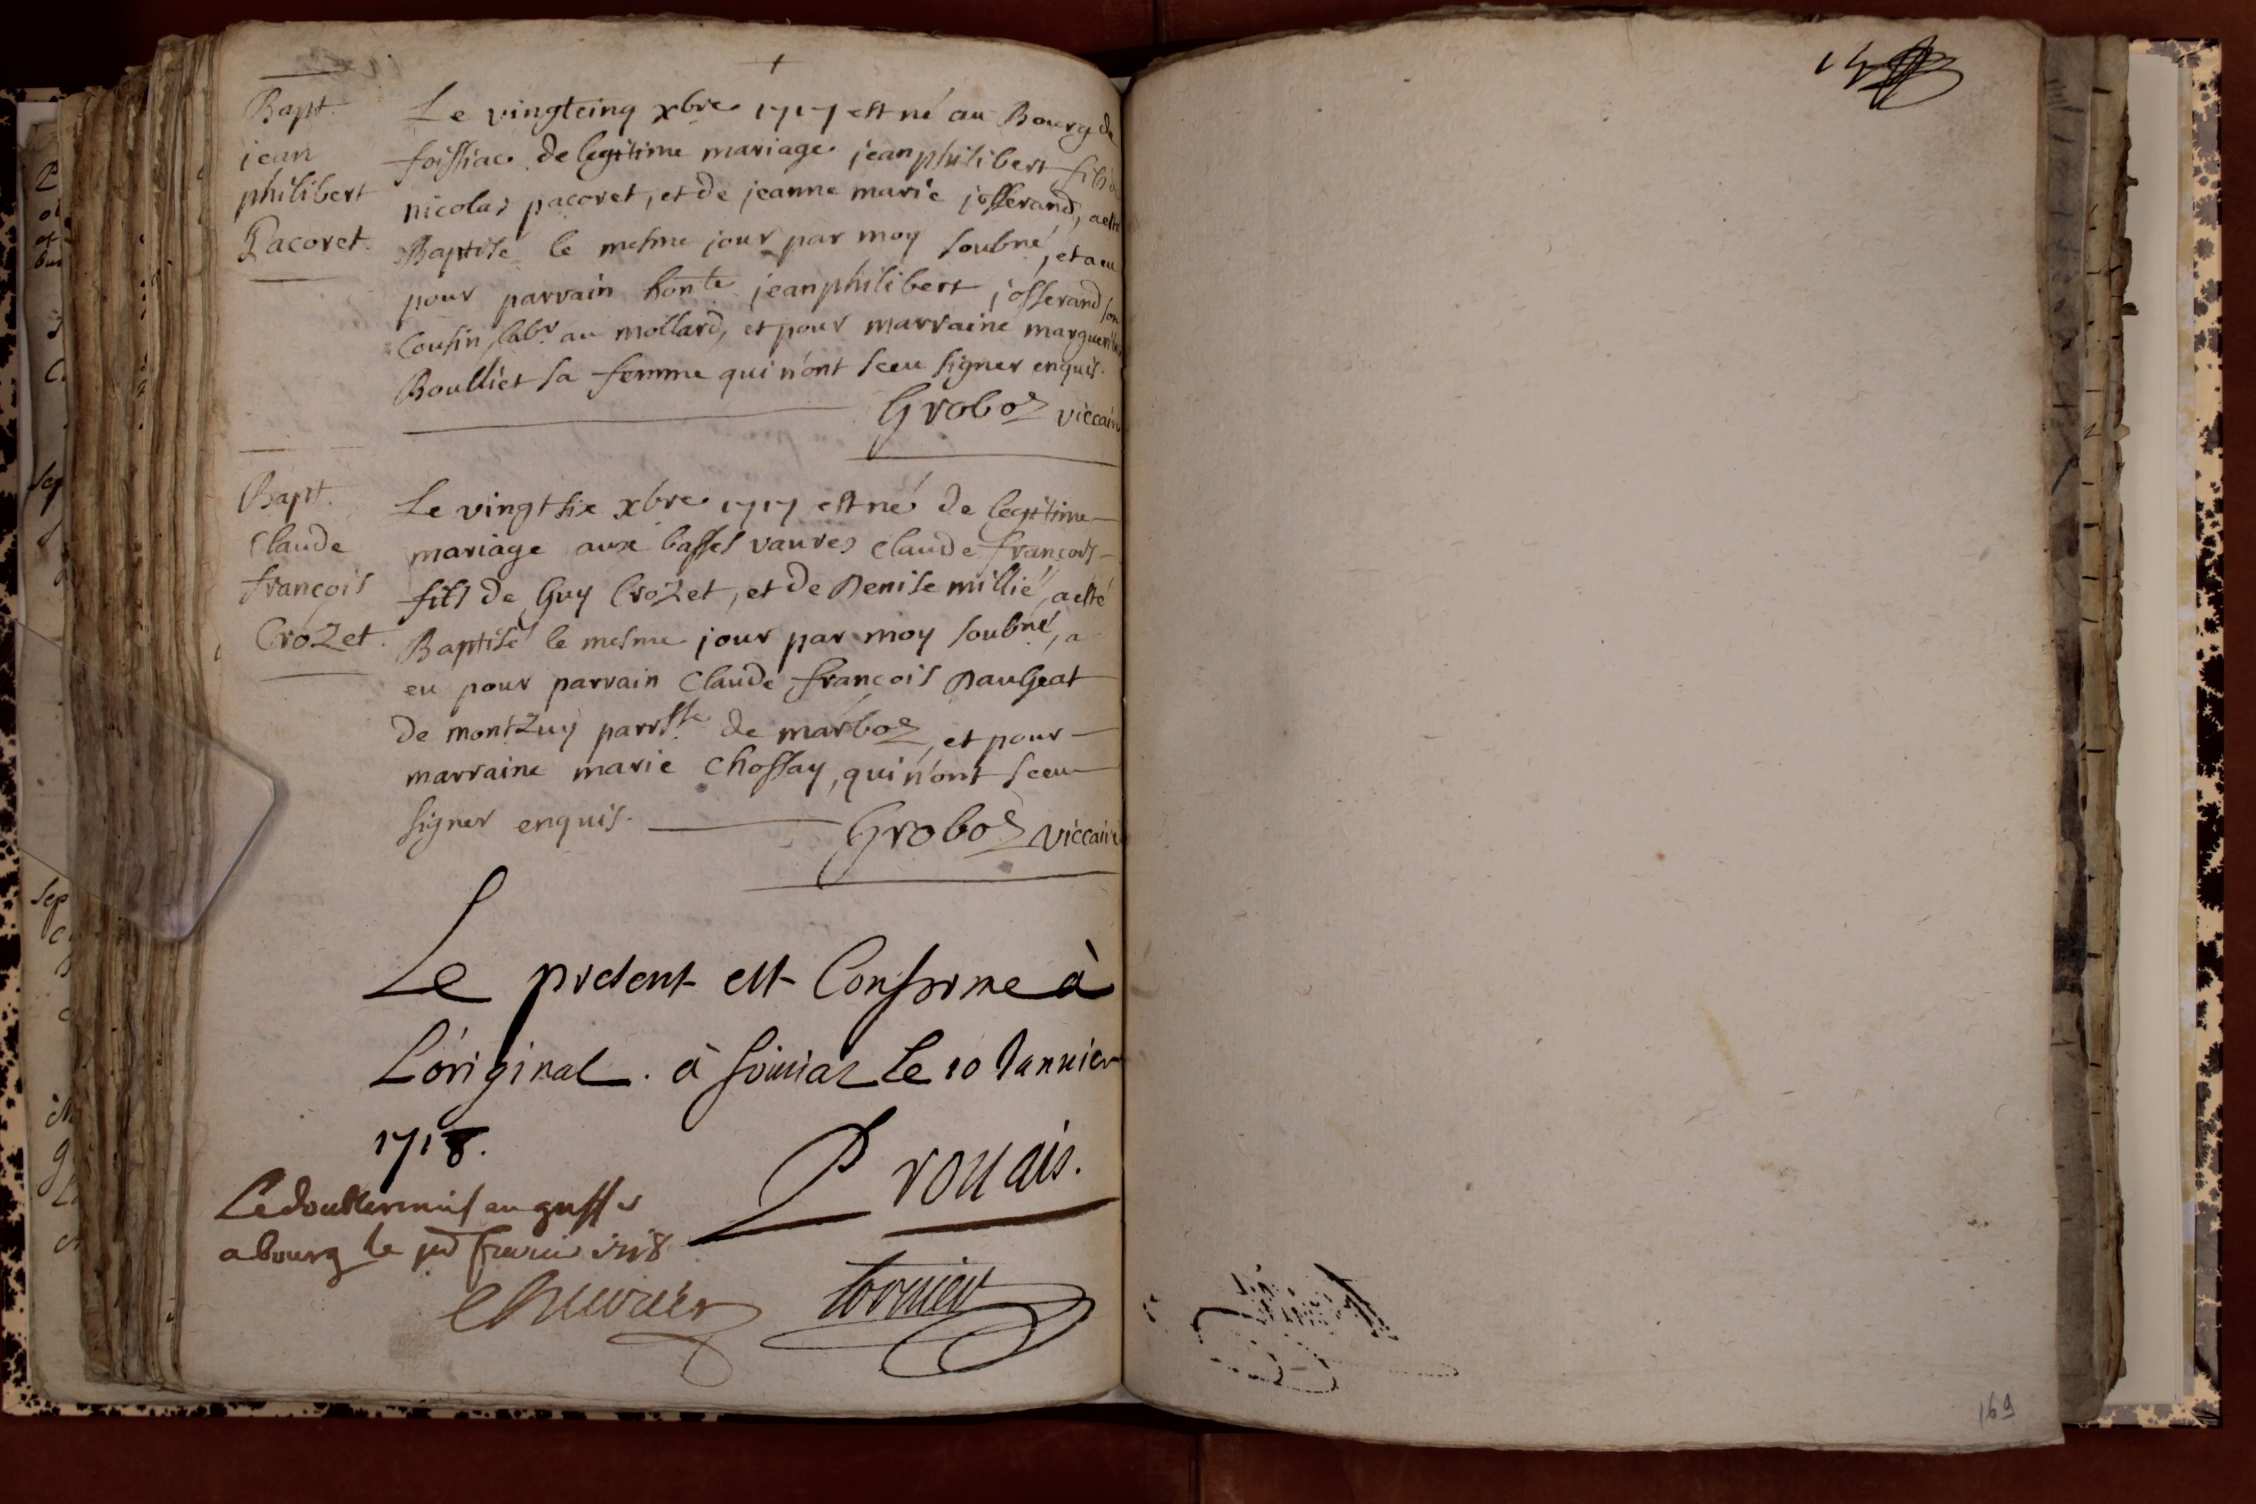 Bapt.
jean
philibert
Pacoret.
Le vingtcinq xbre 1717 est né au Bourg de
foissiac de legitime mariage jeanphilibert fils de
nicolas pacoret, et de jeanne marie josserand, a esté
Baptisé le mesme jour par moy soubné, et a eu
pour parrain honte jeanphilibert josserand son
Cousin labr au mollard, et pour marraine marguerite
Boulliet sa femme qui n'ont sceu signer enquis.
Groboz viccaire
Bapt.
Claude
françois
CroZet.
Le vingtsix xbre 1717 est né de legitime
mariage aux basses vavres Claude françois
fils de Guy CroZet, et de Denise millié, a esté
Baptisé le mesme jour par moy soubné, a
eu pour parrain Claude françois Daugeat
de montZuy parrsse de marboz, et pour
marraine marie Chossay, qui n'ont sceu
signer enquis.
Groboz viccaire
Le present est Conforme à
L'original. à foissiac le 10 Januier
1718.
P rouais.
Le double remis au greffe
a bourg le pr feurier 1718
Chevrier
tornier
14
169